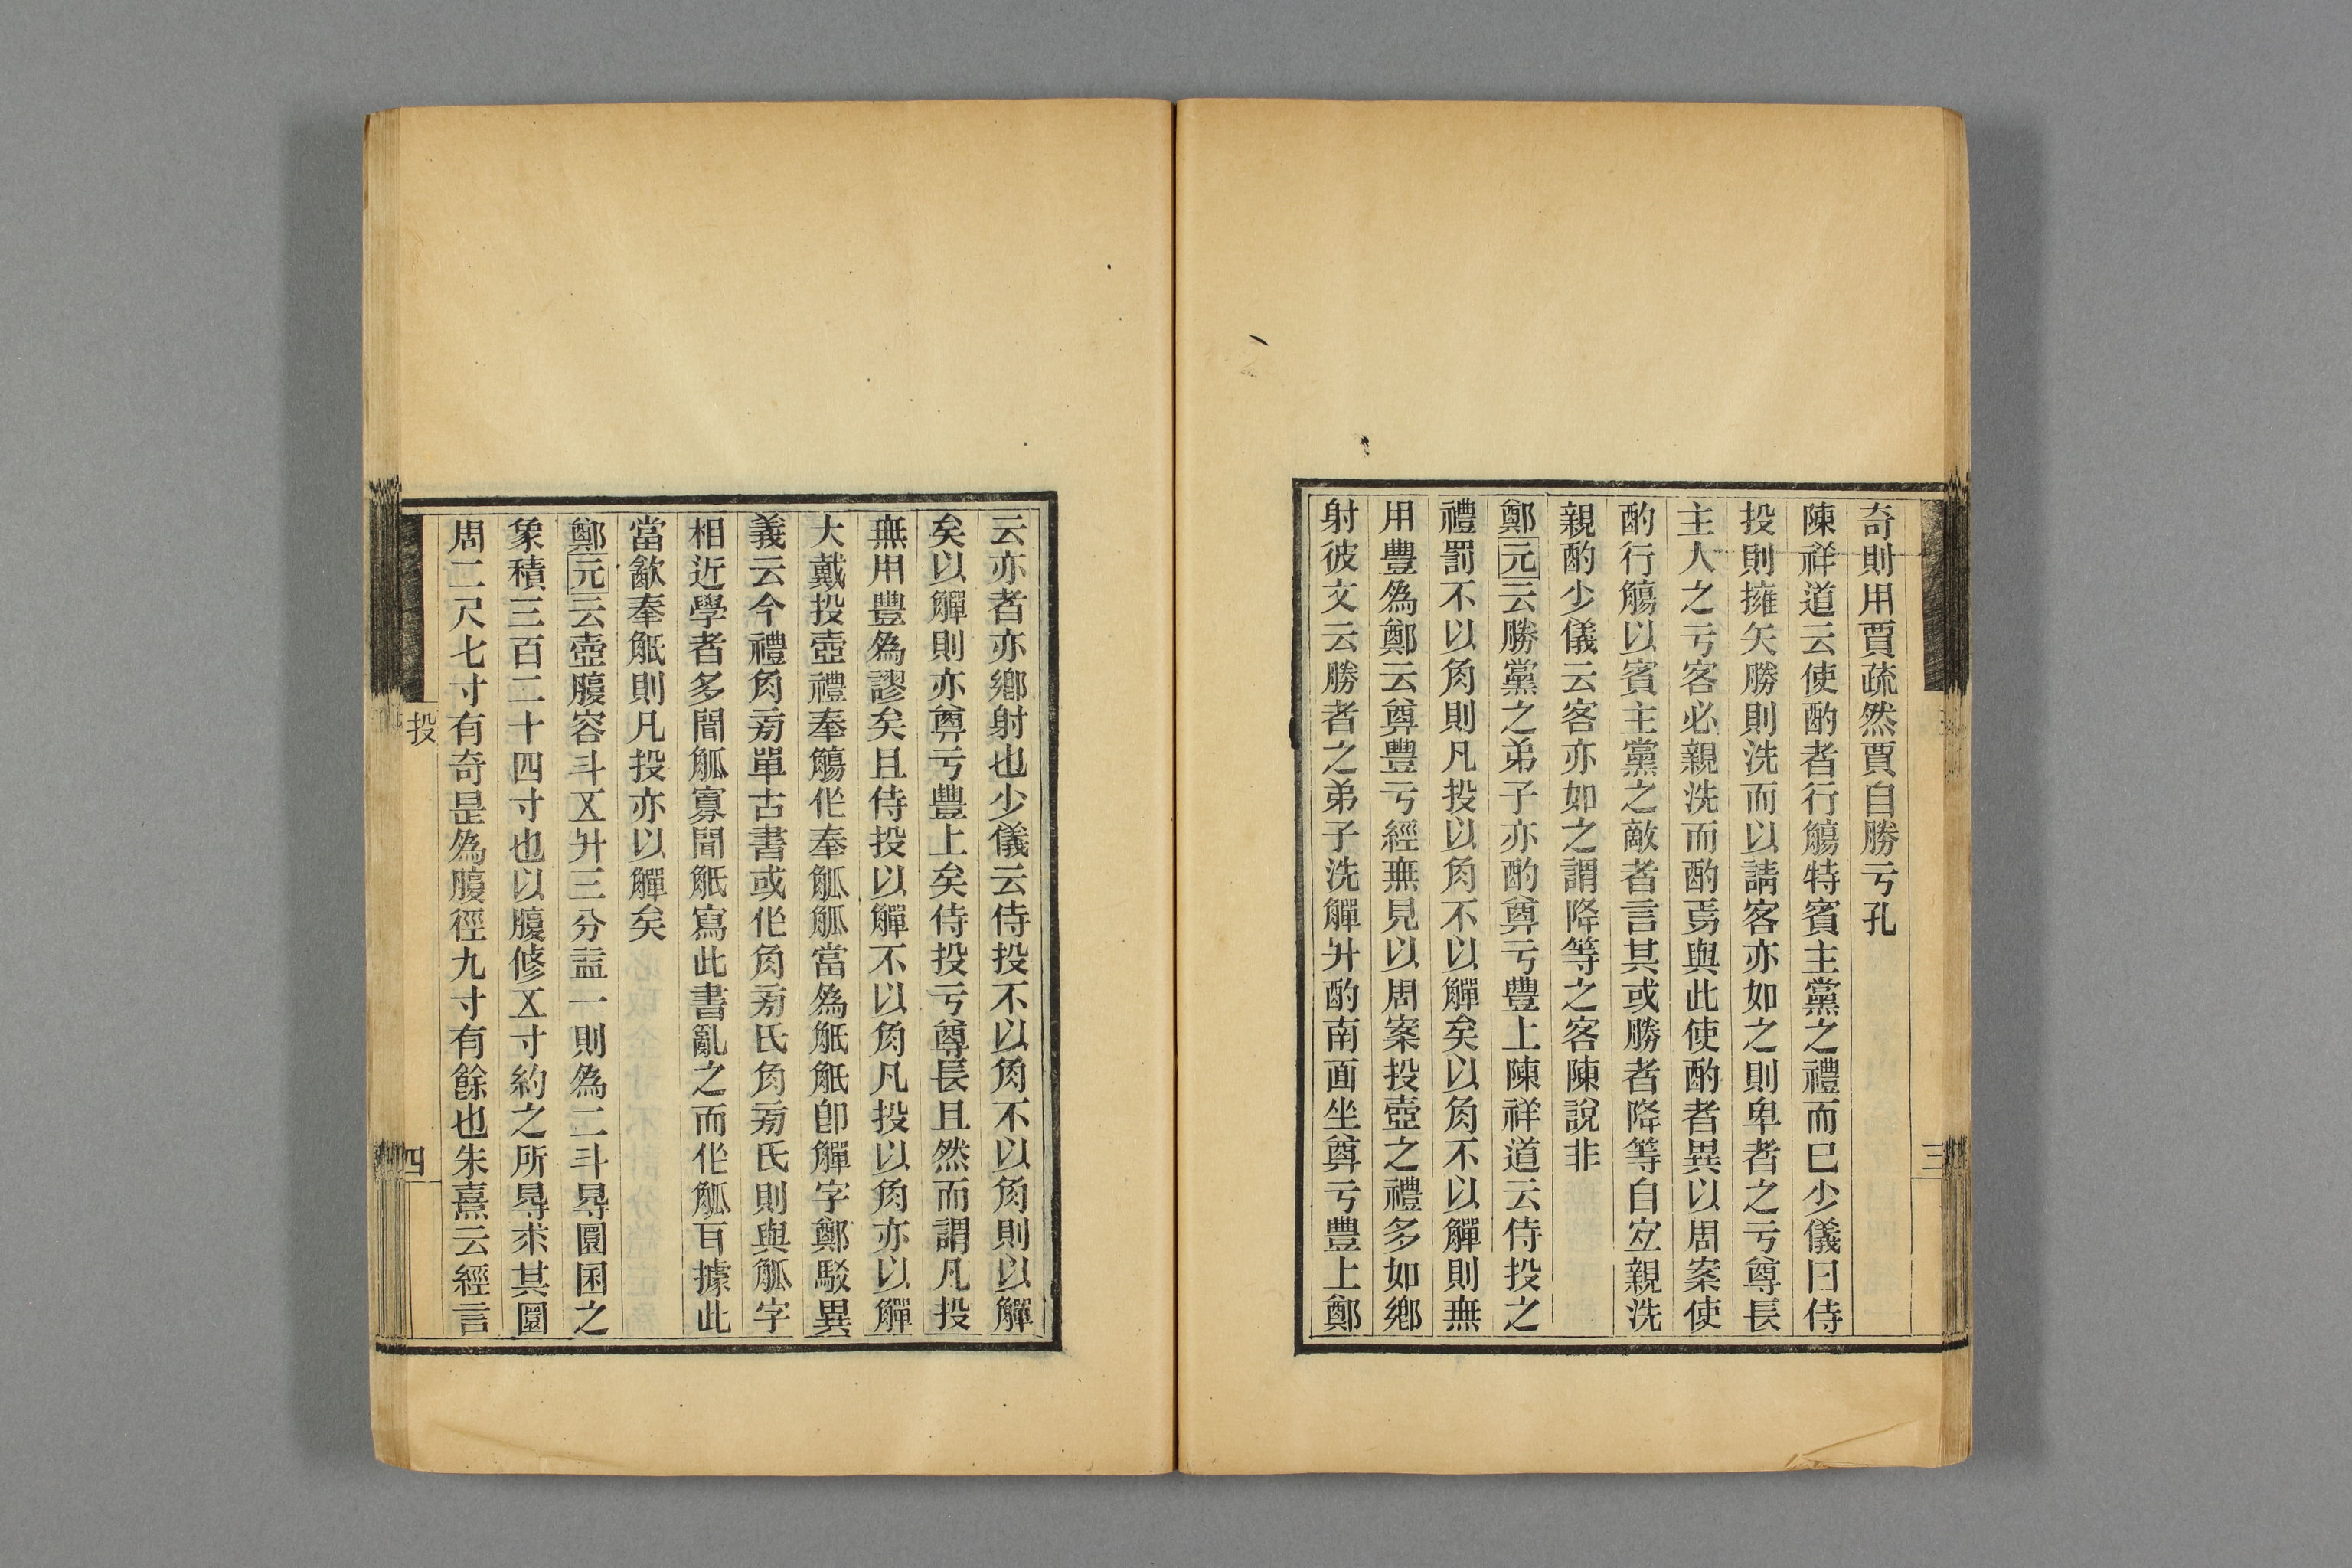 奇則用賈疏然賈自勝亏孔
陳祥道云使酌者行觴特賓主黨之禮而巳少儀曰侍
投則擁矢勝則洗而以請客亦如之則卑者之亏尊長
主人之亏客必親洗而酌焉與此使酌者異以周案使
酌行觴以賓主黨之敵者言其或勝者降等自宐親洗
親酌少儀云客亦如之謂降等之客陳說非
鄭元云勝黨之弟子亦酌尊亏豐上陳祥道云侍投之
禮罰不以角則凡投以角不以觶矣以角不以觶則無
用豐為鄭云尊豐亏經無見以周案投壺之禮多如鄉
射彼文云勝者之弟子洗觶升酌南面坐尊亏豐上鄭
三
云亦者亦鄉射也少儀云侍投不以角不以角則以觶
矣以觶則亦尊亏豐上矣侍投亏尊長且然而謂凡投
無用豐為謬矣且侍投以觶不以角凡投以角亦以觶
大戴投壺禮奉觴作奉觚觚當為觗觗卽觶字鄭駁異
義云今禮角㫄單古書或作角㫄氏角㫄氏則與觚字
相近學者多聞觚寡聞觗寫此書亂之而作觚百據此
當飲奉觗則凡投亦以觶矣
鄭元云壺腹容斗五升三分益一則為二斗得圜囷之
象積三百二十四寸也以腹修五寸約之所得求其圜
周二尺七寸有奇是為腹徑九寸有餘也朱熹云經言
投
四